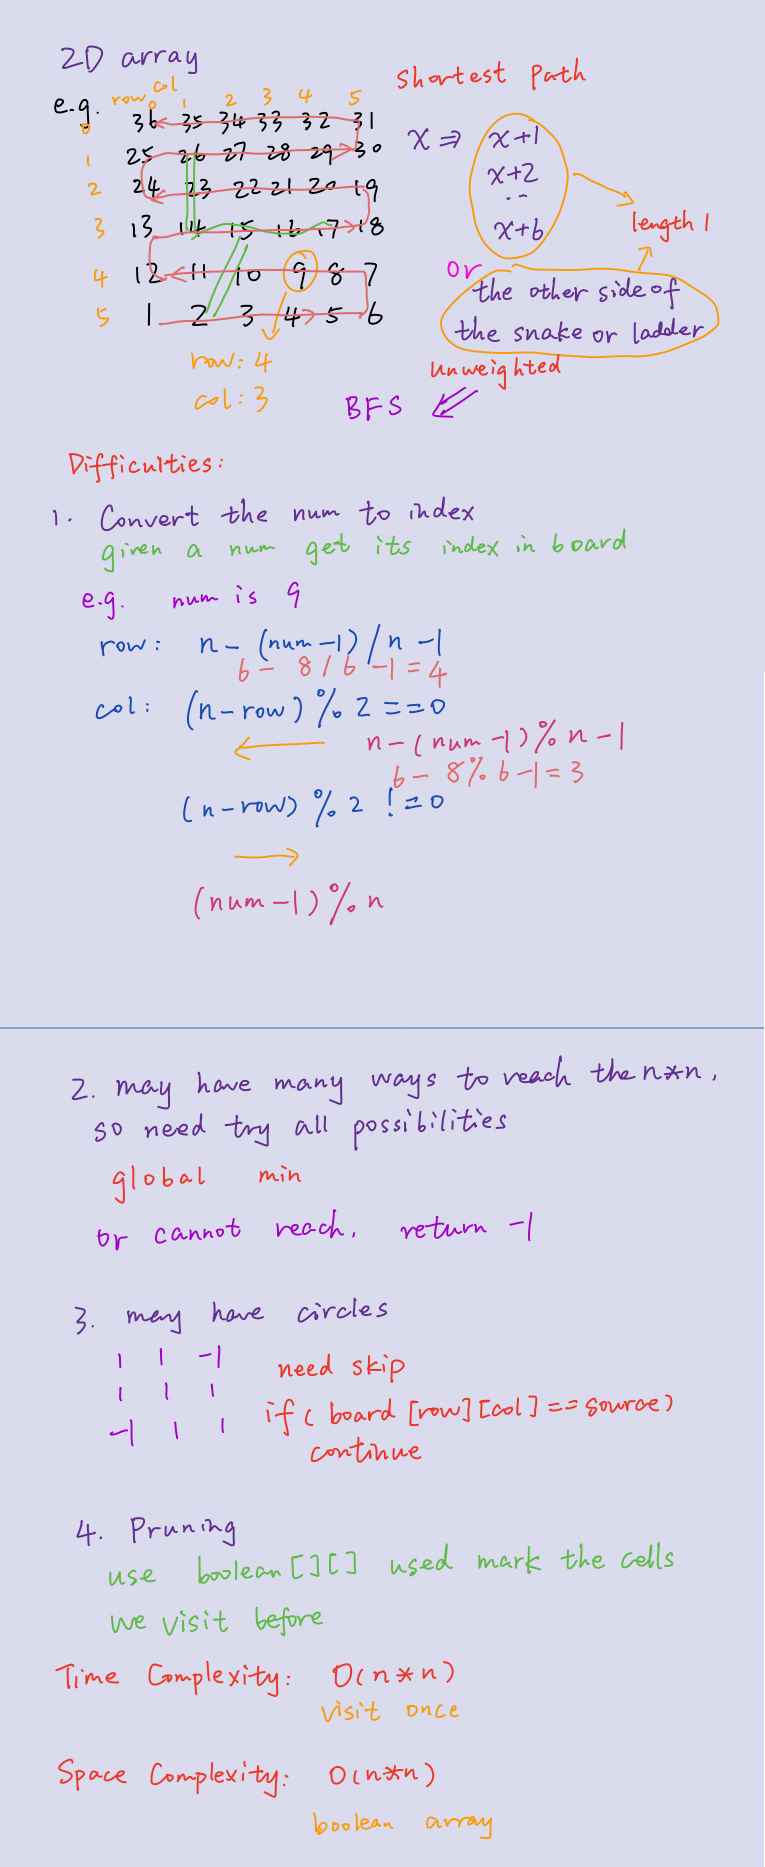 2D array
Shortest Path
col
e.g. row 0 1 2 3 4 5
0 36 35 34 33 32 31
1 25 26 27 28 29 30
2 24 23 22 21 20 19
3 13 14 15 16 17 18
4 12 11 10 9 8 7
5 1 2 3 4 5 6
row: 4
col: 3
x ⇒ x+1
x+2
..
x+6
length 1
or
the other side of
the snake or ladder
unweighted
BFS
Difficulties:
1. Convert the num to index
given a num get its index in board
e.g. num is 9
row: n - (num-1) / n -1
6 - 8 / 6 -1 = 4
col: (n-row) % 2 == 0
← n-(num-1)% n-1
6 - 8% 6-1 = 3
(n-row) % 2 != 0
→
(num-1) % n
2. may have many ways to reach the n*n,
so need try all possibilities
global min
or cannot reach, return -1
3. may have circles
1 1 -1
1 1 1
-1 1 1
need skip
if( board [row][col] == source)
continue
4. Pruning
use boolean[][] used mark the cells
we visit before
Time Complexity: O(n*n)
visit once
Space Complexity: O(n*n)
boolean array